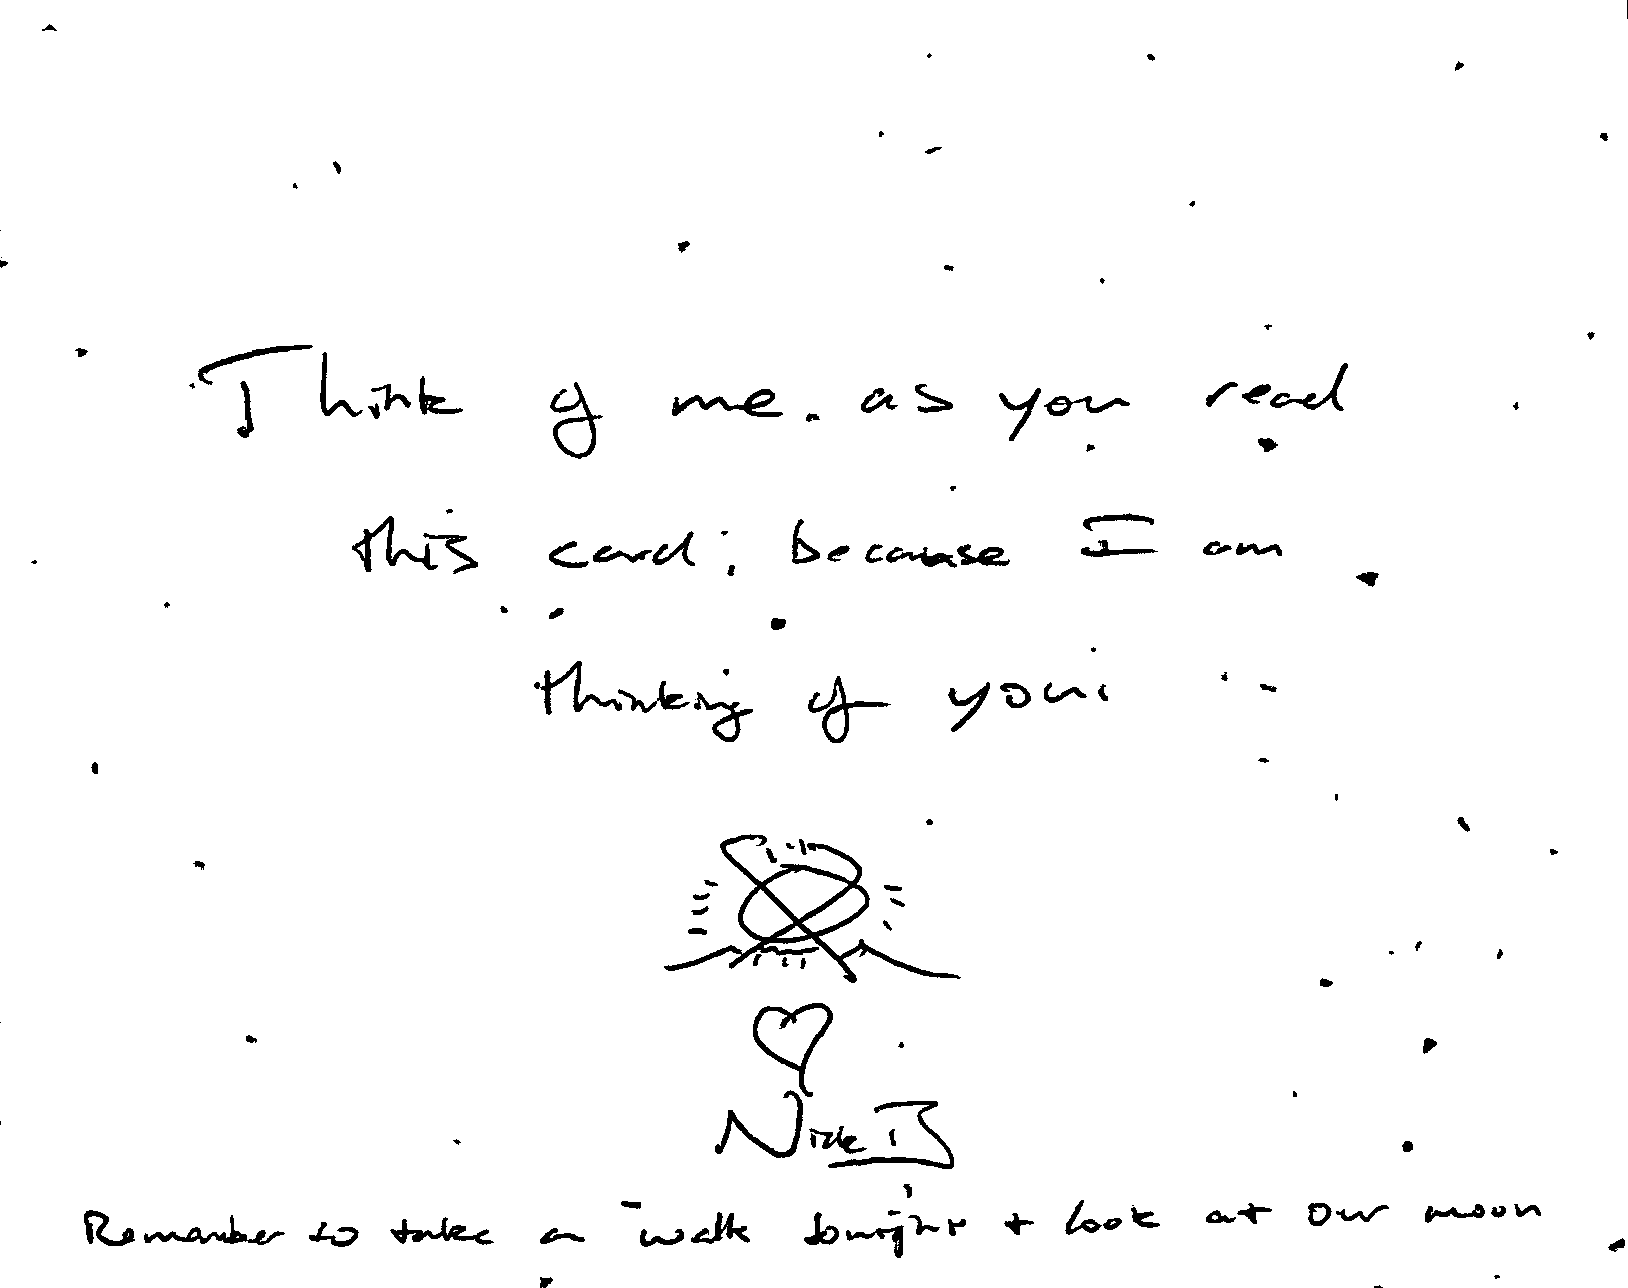 Think of me. as you read
this card; because I am
thinking of you.
Nick B
Remember to take a walk tonight + look at our moon